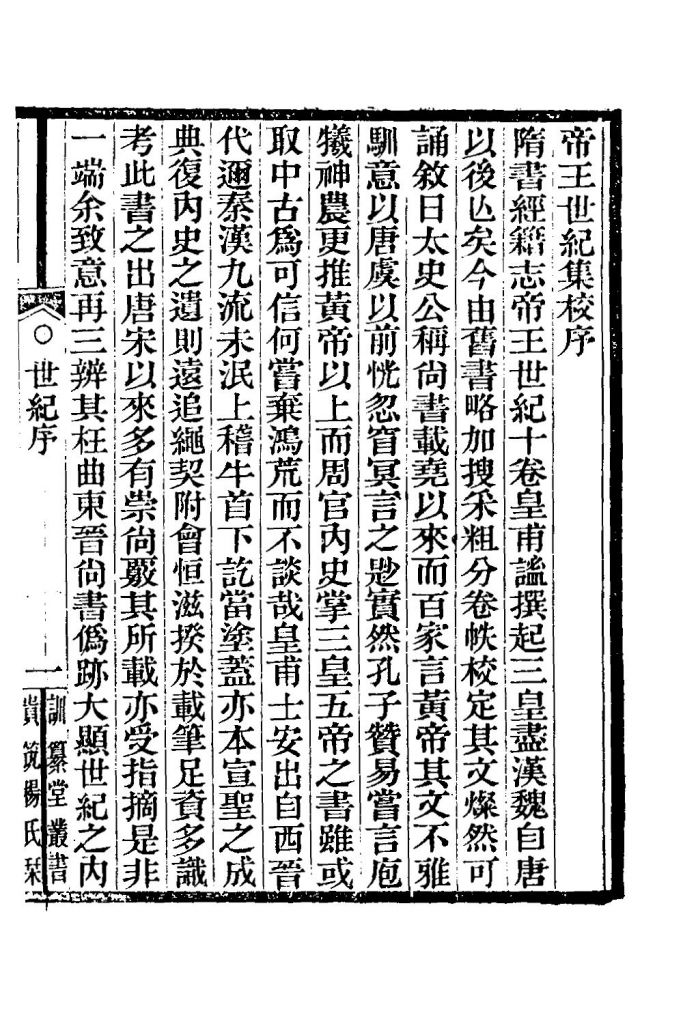 帝王世紀集校序
隋書經籍志帝王世紀十卷皇甫謐撰起三皇盡漢魏自唐
以後亾矣今由舊書略加搜采粗分卷帙校定其文燦然可
誦敘曰太史公稱尚書載堯以來而百家言黃帝其文不雅
馴意以唐虞以前恍忽窅冥言之尟實然孔子贊易嘗言庖
犧神農更推黃帝以上而周官內史掌三皇五帝之書雖或
取中古爲可信何嘗棄鴻荒而不談哉皇甫士安出自西晉
代邇秦漢九流未泯上稽牛首下訖當塗蓋亦本宣聖之成
典復內史之遺則遠追繩契附會恒滋揆於載筆足資多識
考此書之出唐宋以來多有崇尚覈其所載亦受指摘是非
一端余致意再三辨其枉曲東晉尚書僞跡大顯世紀之內
世紀序
一
訓纂堂叢書
貴筑楊氏栞